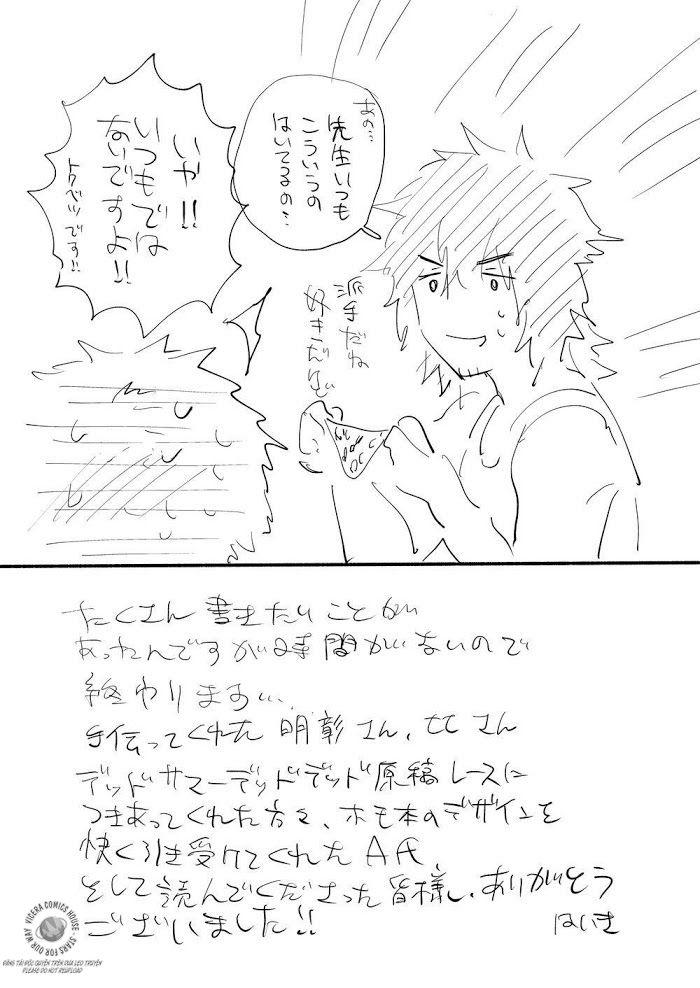 あの…
先生いつも
こういうの
はいてるの…
いや!!
いつもでは
ないですよ!!
トクベツです!!
派手だね
好きだな
たくさん書きたいことが
あったんですが時間がないので
終わります…
手伝ってくれた明彰さん、ヒヒさん
デッドサマーデッドデッド原稿レースに
つきあってくれた方々、ホモ本のデザインを
快く引き受けてくれたA氏、
そして読んでくださった皆様、ありがとう
ございました!!
はいき
VICERA COMICS HOUSE - STARS FOR OUR WAY
ĐĂNG TẢI ĐỘC QUYỀN TRÊN DUA LEO TRUYỆN
PLEASE DO NOT REUPLOAD